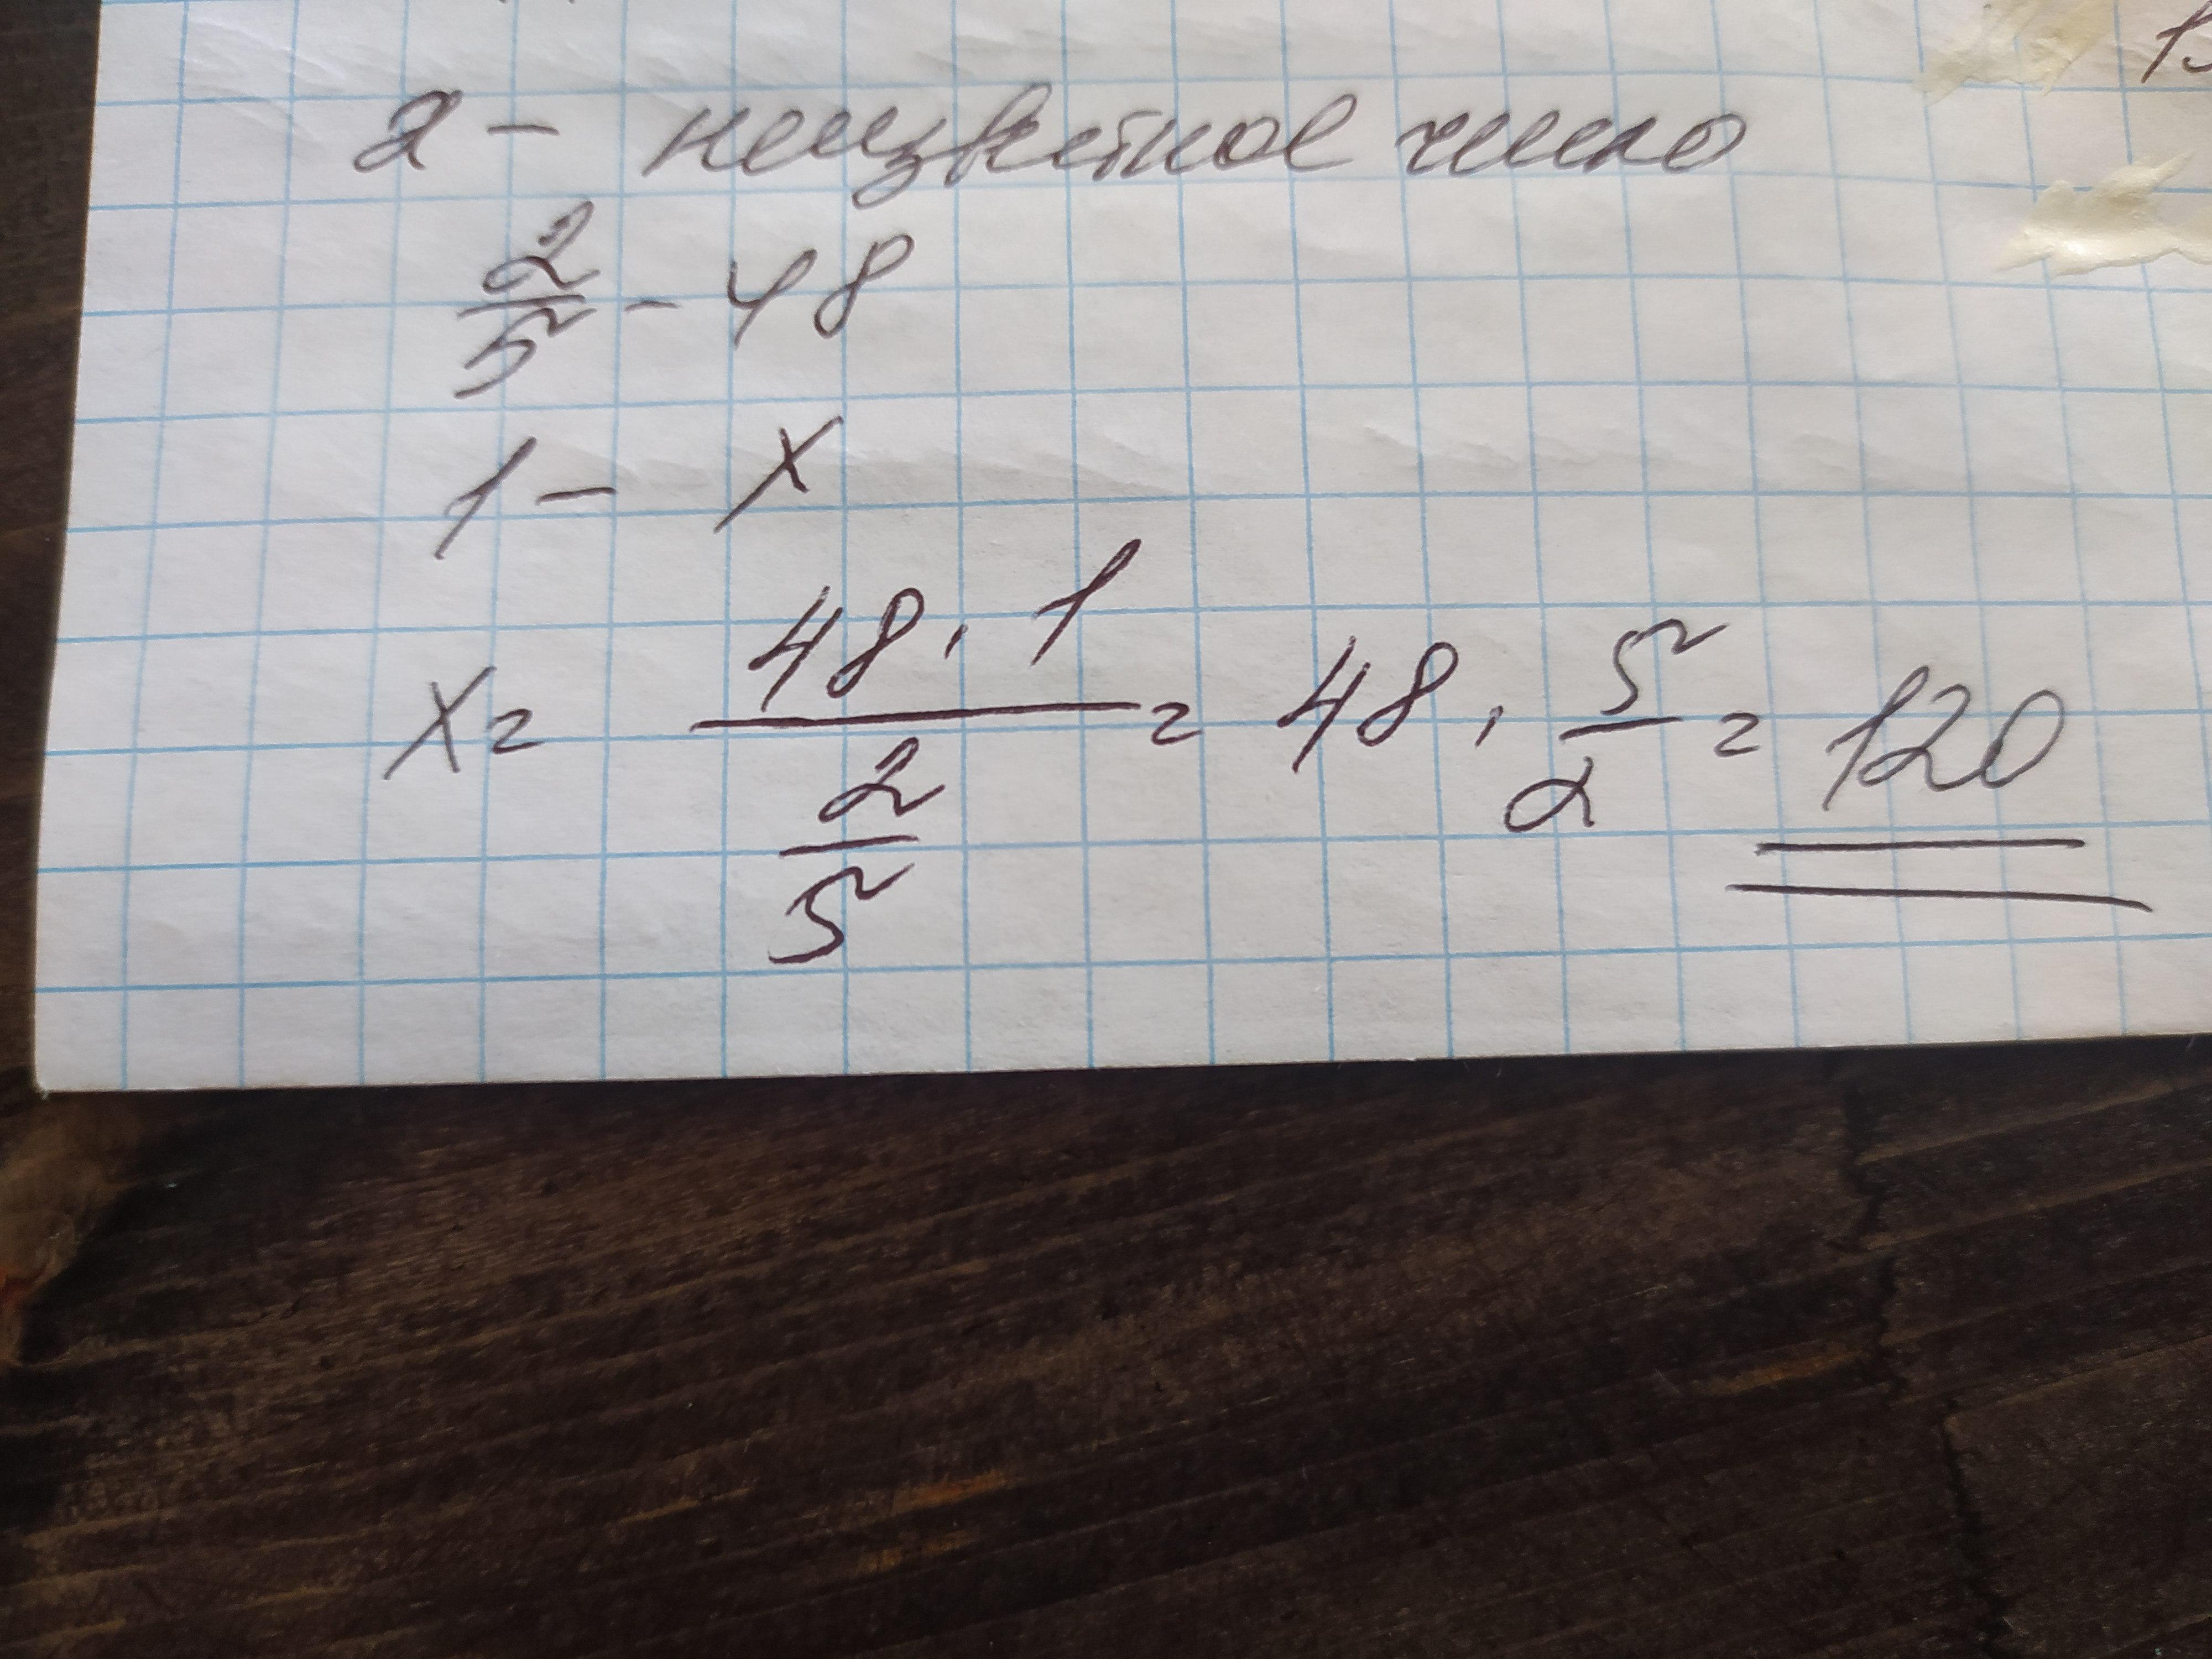 x - неизвестное число
2/5 - 48
1 - x
x = 48 · 1 / 2/5 = 48 · 5/2 = 120